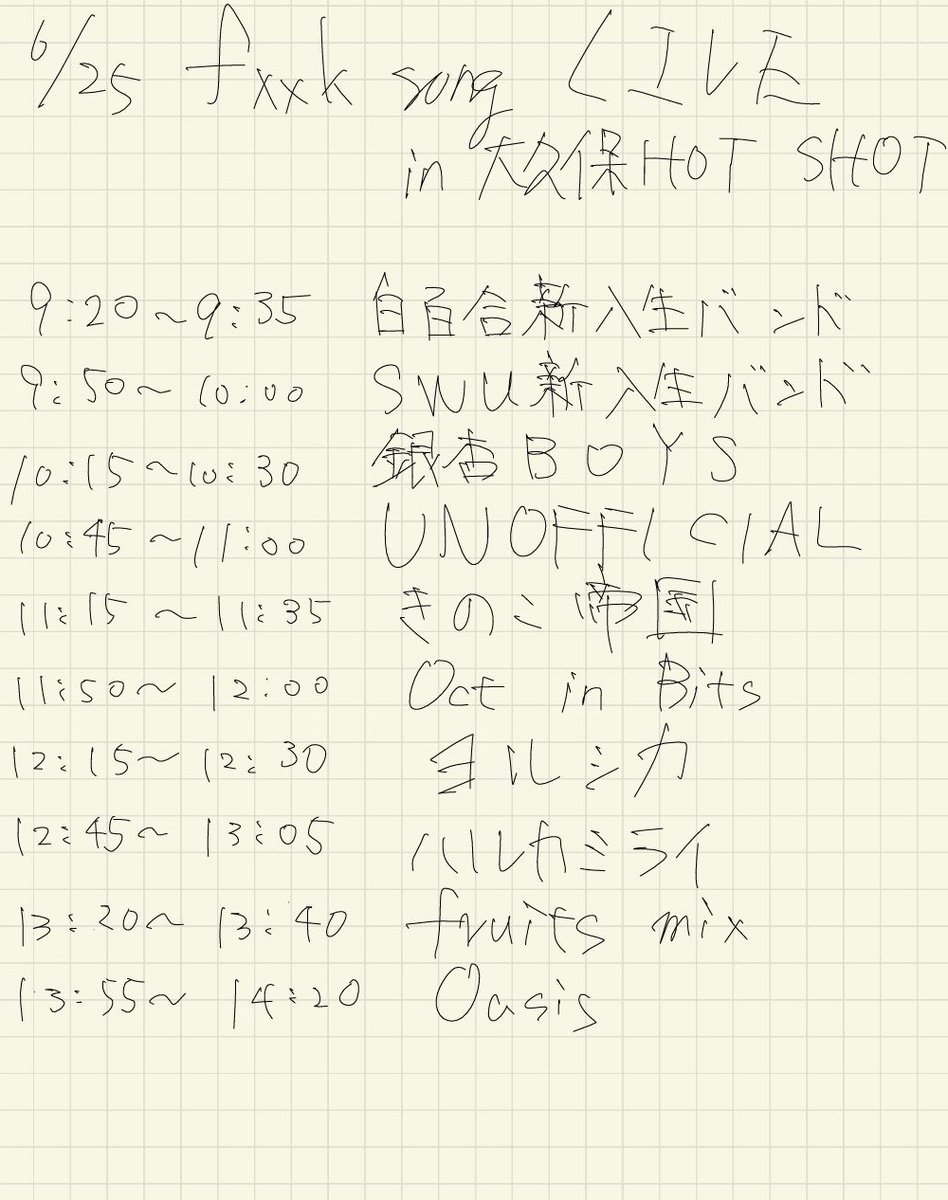 6/25 fxxk song LIVE
in 大久保HOT SHOT
9:20~9:35 白百合新入生バンド
9:50~10:00 SWU新入生バンド
10:15~10:30 銀杏BOYS
10:45~11:00 UNOFFICIAL
11:15~11:35 きのこ帝国
11:50~12:00 Oct in Bits
12:15~12:30 ヨルシカ
12:45~13:05 ハルカミライ
13:20~13:40 fruits mix
13:55~14:20 Oasis